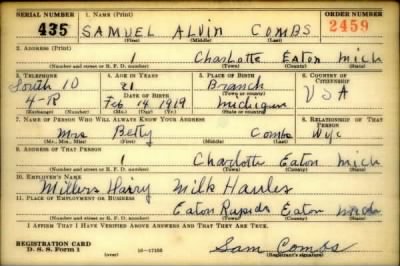 SERIAL NUMBER 1. NAME (Print) ORDER NUMBER
435 SAMUEL ALVIN COMBS 2459
(First) (Middle) (Last)
2. ADDRESS (Print)
1 Charlotte Eaton Mich
(Number and street or R. F. D. number) (Town) (County) (State)
3. TELEPHONE 4. AGE IN YEARS 5. PLACE OF BIRTH 6. COUNTRY OF CITIZENSHIP
South 10 21 Branch
DATE OF BIRTH (Town or county)
4-R Feb 14 1919 Michigan USA
(Exchange) (Number) (Mo.) (Day) (Yr.) (State or country)
7. NAME OF PERSON WHO WILL ALWAYS KNOW YOUR ADDRESS 8. RELATIONSHIP OF THAT PERSON
Mrs Betty Combs Wife
(Mr., Mrs., Miss) (First) (Middle) (Last)
9. ADDRESS OF THAT PERSON
1 Charlotte Eaton Mich
(Number and street or R. F. D. number) (Town) (County) (State)
10. EMPLOYER'S NAME
Harry Milk
11. PLACE OF EMPLOYMENT OR BUSINESS
Eaton Rapids Eaton Mich
(Number and street or R. F. D. number) (Town) (County) (State)
I AFFIRM THAT I HAVE VERIFIED ABOVE ANSWERS AND THAT THEY ARE TRUE.
REGISTRATION CARD
D. S. S. Form 1 16-17105 Sam Combs
(Registrant's signature)